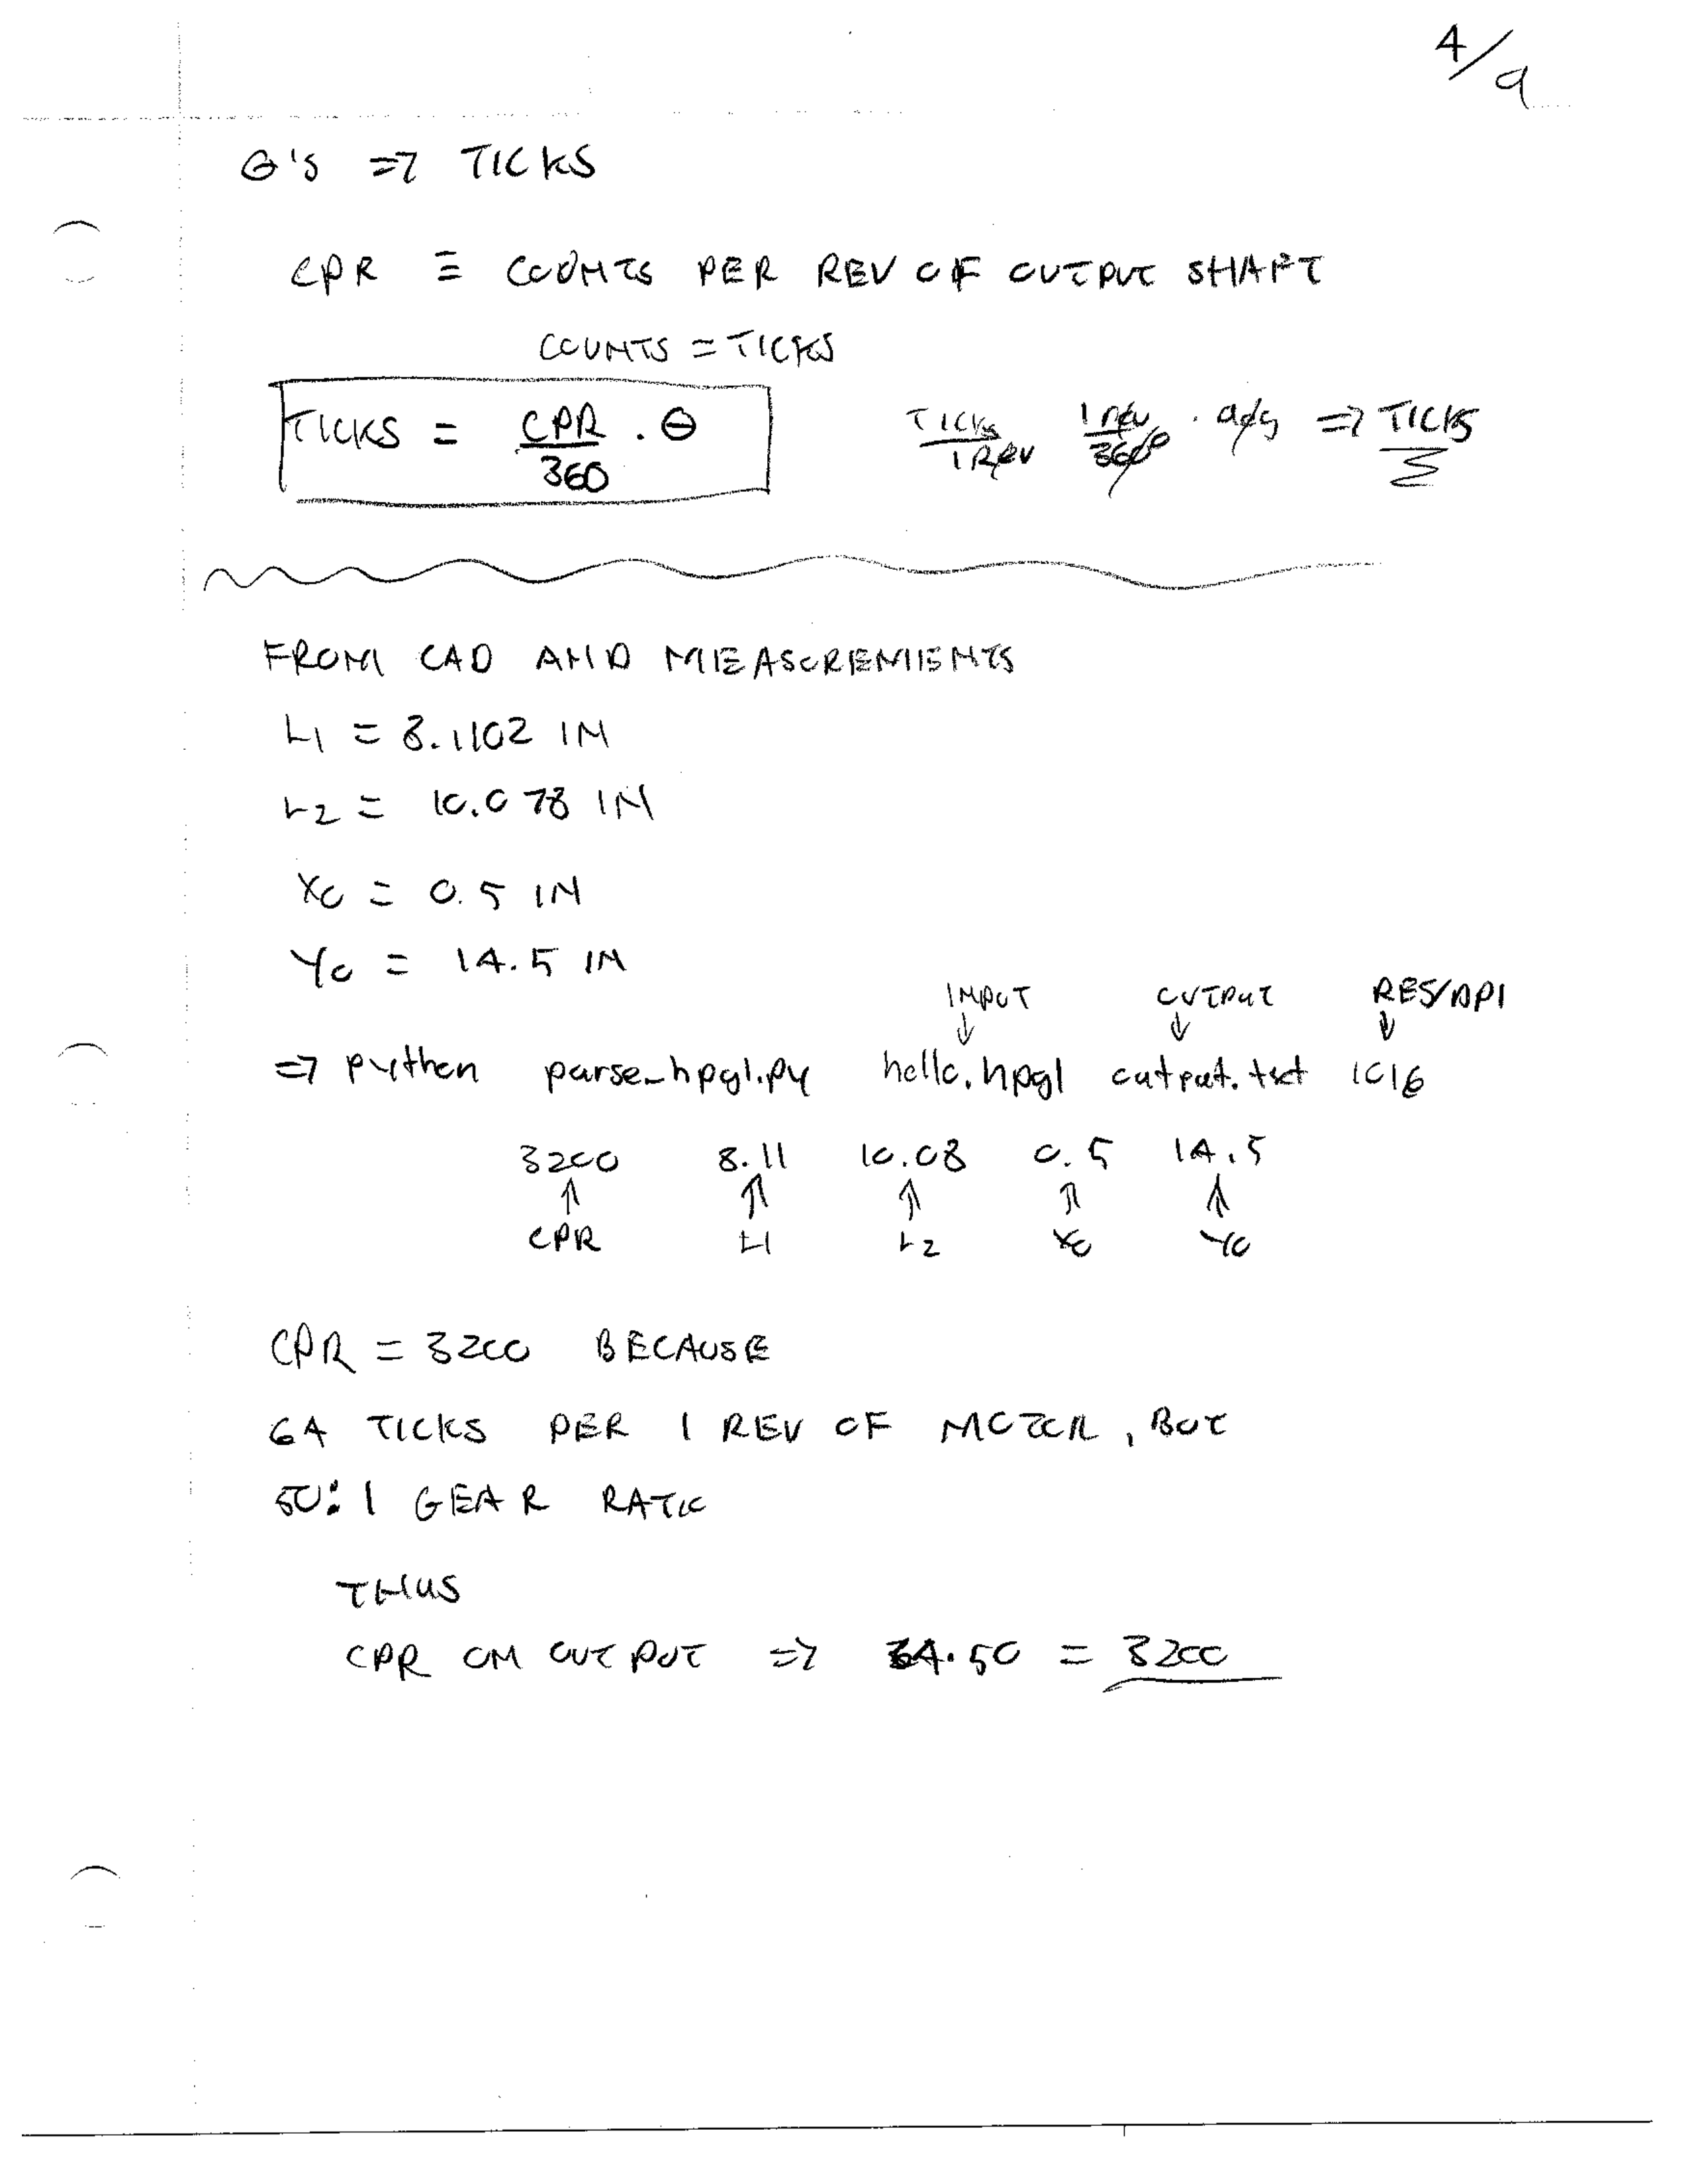 4/9
θ's => TICKS
CPR ≡ COUNTS PER REV OF OUTPUT SHAFT
COUNTS = TICKS
TICKS = CPR/360 · θ    TICKS/1 REV  1 rev/360° · deg => TICKS
FROM CAD AND MEASUREMENTS
L1 = 8.1102 IN
L2 = 10.078 IN
X0 = 0.5 IN
Y0 = 14.5 IN
INPUT OUTPUT RES/DPI
↓ ↓ ↓
=> python parse_hpgl.py hello.hpgl output.txt 1016
3200 8.11 10.08 0.5 14.5
↑ ↑ ↑ ↑ ↑
CPR L1 L2 X0 Y0
CPR = 3200 BECAUSE
64 TICKS PER 1 REV OF MOTOR, BUT
50:1 GEAR RATIO
THUS
CPR ON OUTPUT => 64·50 = 3200